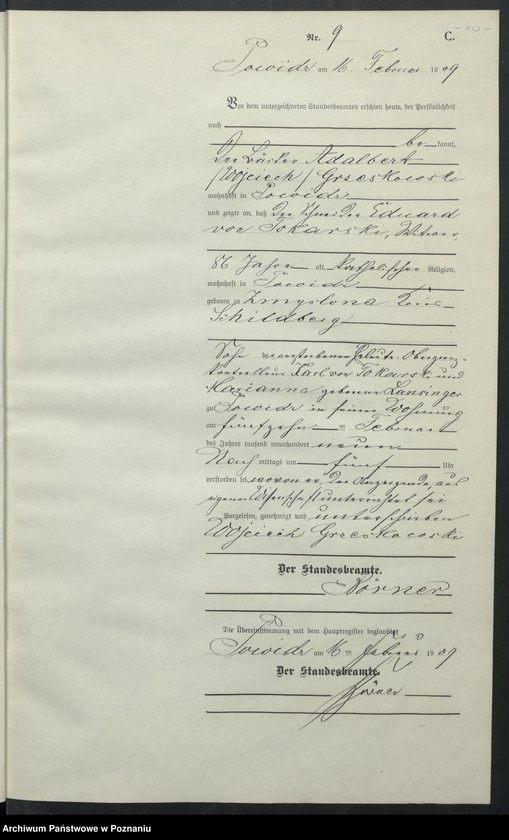 - 10 -
Nr. 9 C.
Powidz am 16. Februar 1909
Vor dem unterzeichneten Standesbeamten erschien heute, der Persönlichkeit
nach
be kannt,
der Bäcker Adalbert
/Wojciech/ Grzeskowski
wohnhaft in Powidz
und zeigte an, daß der Schneider Eduard
von Tokarski, Witwer,
86 Jahre alt, katholischer Religion,
wohnhaft in Powidz
geboren zu Zmyslona Kreis
Schildberg
Sohn der verstorbenen Eheleute Obergrenz-
kontrolleur Karl von Tokarski und
Marianna geborene Lansinger
zu Powidz in seiner Wohnung
am fünfzehnten Februar
des Jahres tausend neunhundert neun
Nach mittags um fünf Uhr
verstorben sei, wovon er, der Anzeigende, aus
eigener Wissenschaft unterrichtet sei
Vorgelesen, genehmigt und unterschrieben
Wojciech Grzeskowski
Der Standesbeamte.
Dörner
Die Übereinstimmung mit dem Hauptregister beglaubigt
Powidz am 16 ten Februar 1909
Der Standesbeamte.
Dörner
Archiwum Państwowe w Poznaniu